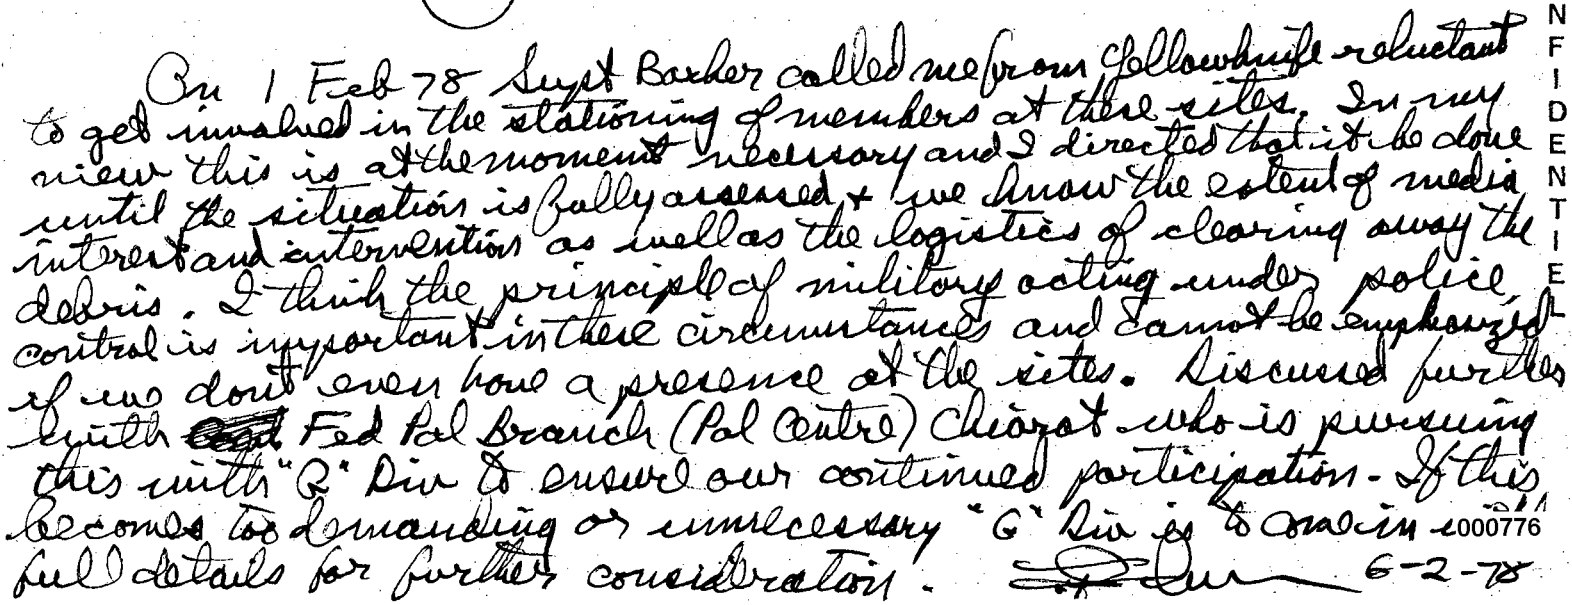 On 1 Feb 78 Supt Barker called me from Yellowknife reluctant
to get involved in the stationing of members at these sites. In my
view this is at the moment necessary and I directed that it be done
until the situation is fully assessed + we know the extent of media
interest and intervention as well as the logistics of clearing away the
debris. I think the principle of military acting under police
control is important in these circumstances and cannot be emphasized
if we don't even have a presence at the sites. Discussed further
with Fed Pol Branch (Pol Centre) who is pursuing
this with "G" Div to ensure our continued participation - If this
becomes too demanding or unnecessary "G" Div is to come in
000776
full details for further consideration.
6-2-78
NFIDENTIEL